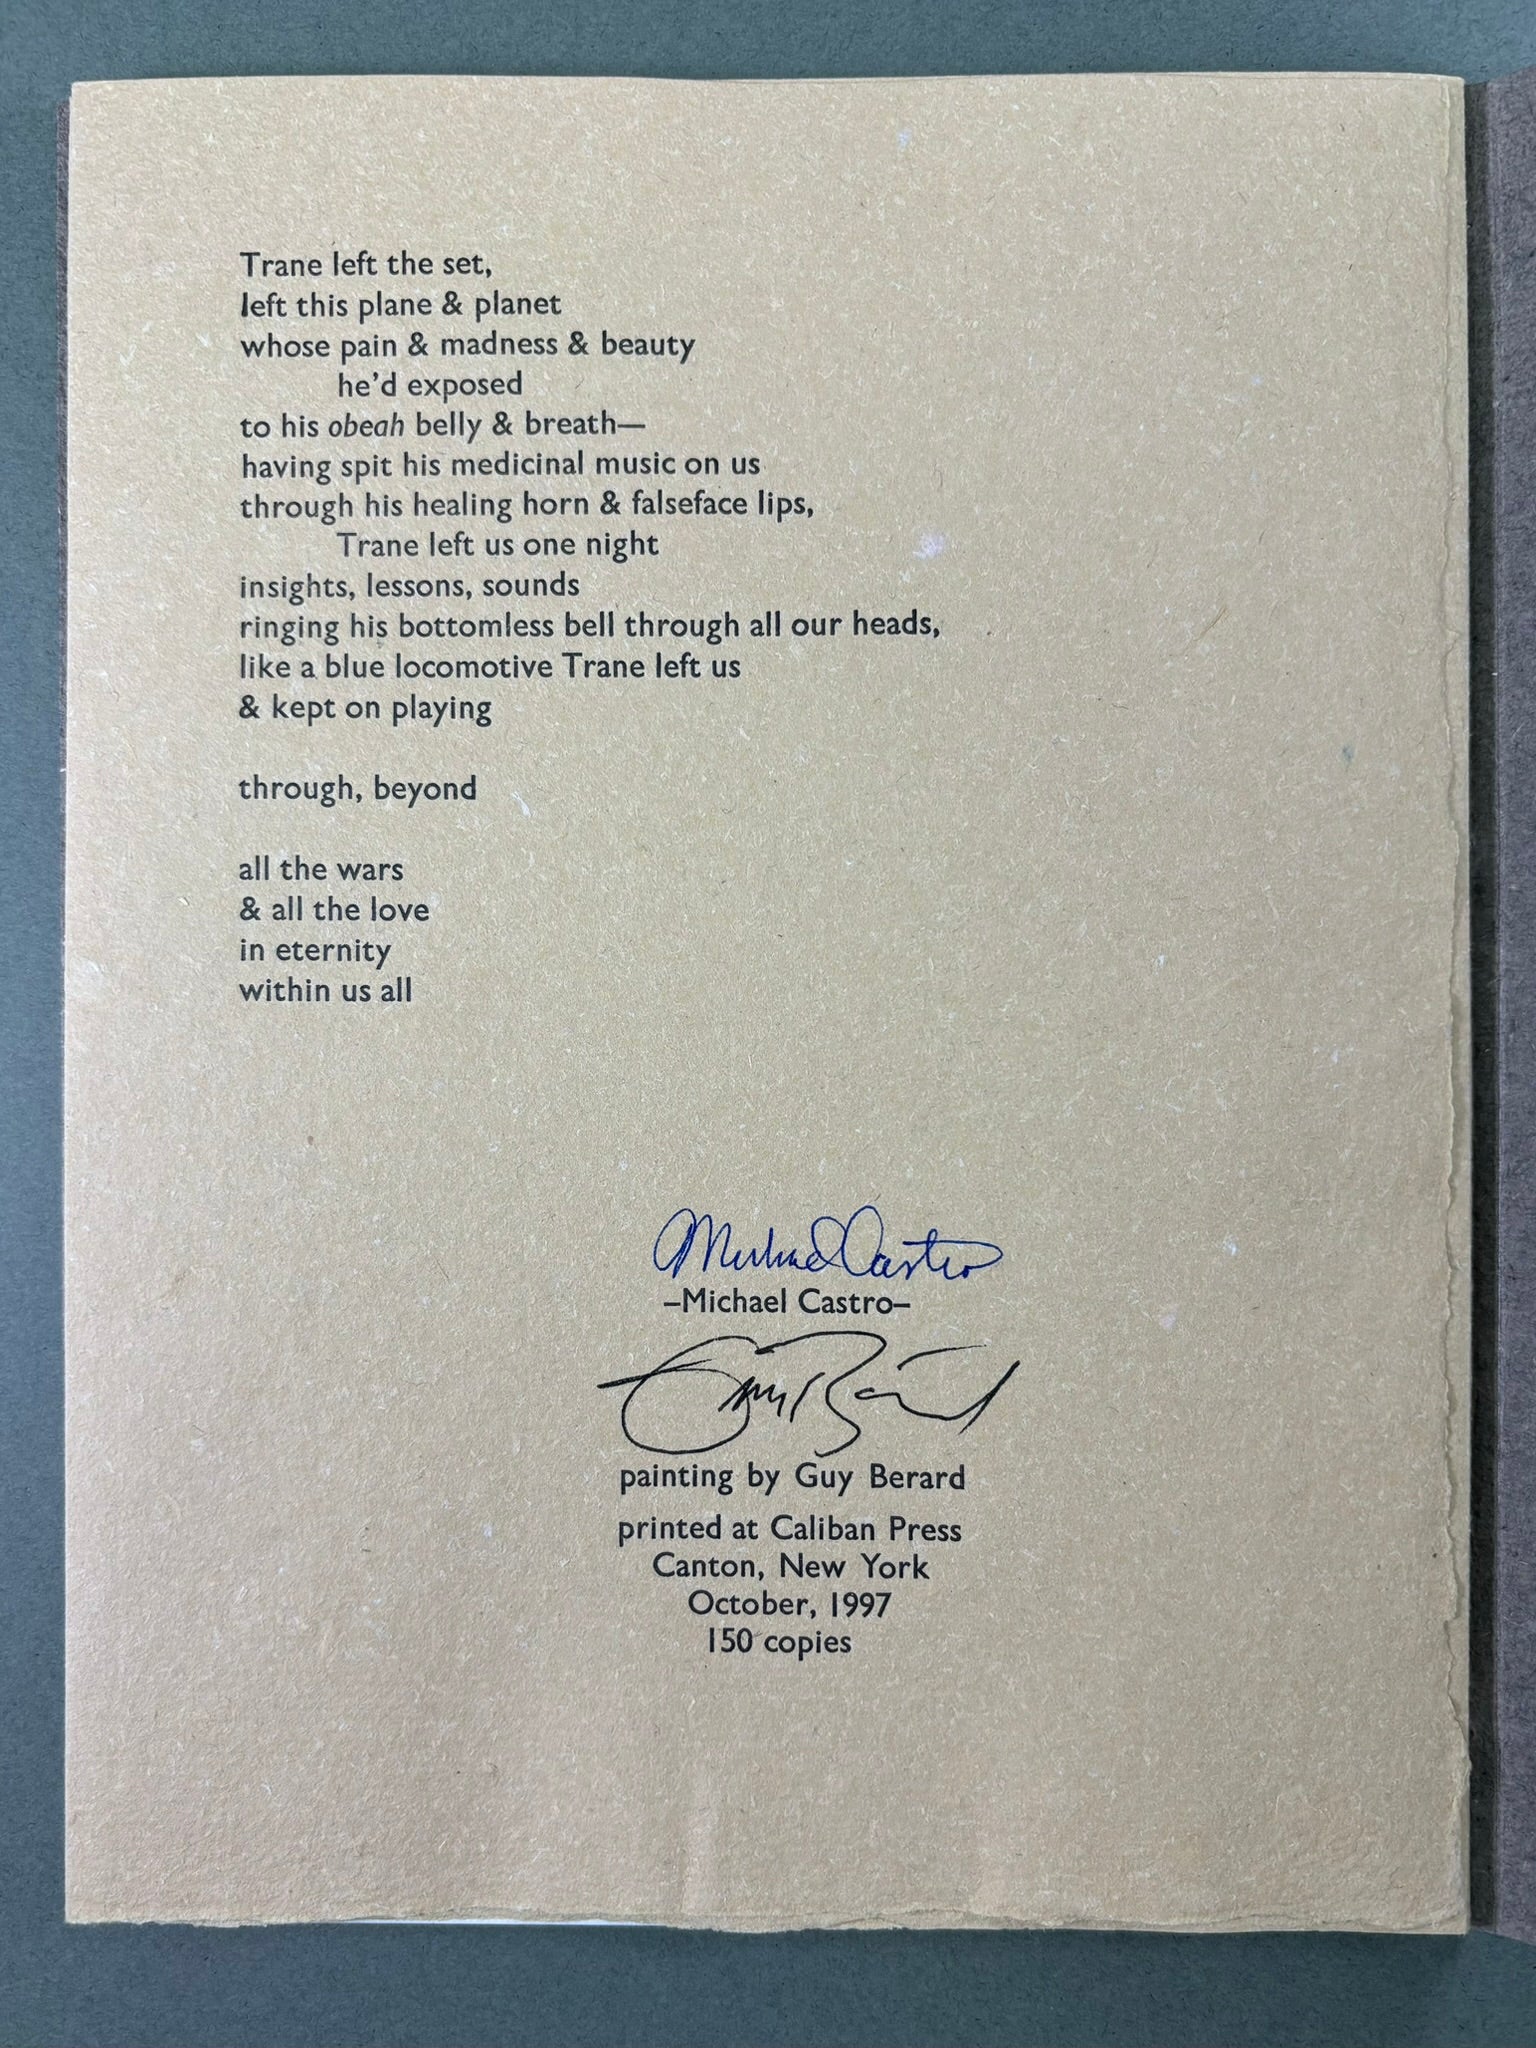 Trane left the set,
left this plane & planet
whose pain & madness & beauty
he'd exposed
to his obeah belly & breath—
having spit his medicinal music on us
through his healing horn & falseface lips,
Trane left us one night
insights, lessons, sounds
ringing his bottomless bell through all our heads,
like a blue locomotive Trane left us
& kept on playing
through, beyond
all the wars
& all the love
in eternity
within us all
Michael Castro
–Michael Castro–
Guy Berard
painting by Guy Berard
printed at Caliban Press
Canton, New York
October, 1997
150 copies